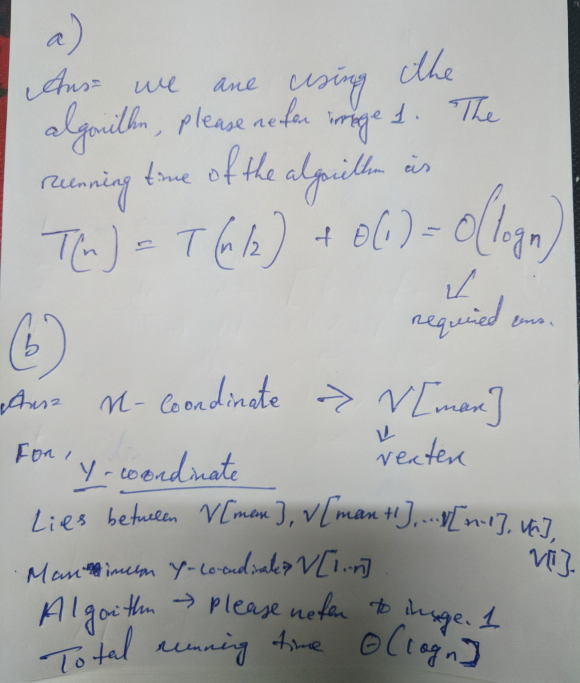 a)
Ans= we are using the
algorithm, please refer image 1. The
running time of the algorithm is
T(n) = T(n/2) + θ(1) = O(logn)
↓
required ans.
(b)
Ans= x- coordinate → V[max]
↓
vertex
For,
Y-coordinate
Lies between V[max], V[max+1],...V[n-1], V[n],
V[1].
Maximum Y-co-ordinate→ V[1..n]
Algorithm → please refer to image. 1
Total running time θ(logn]